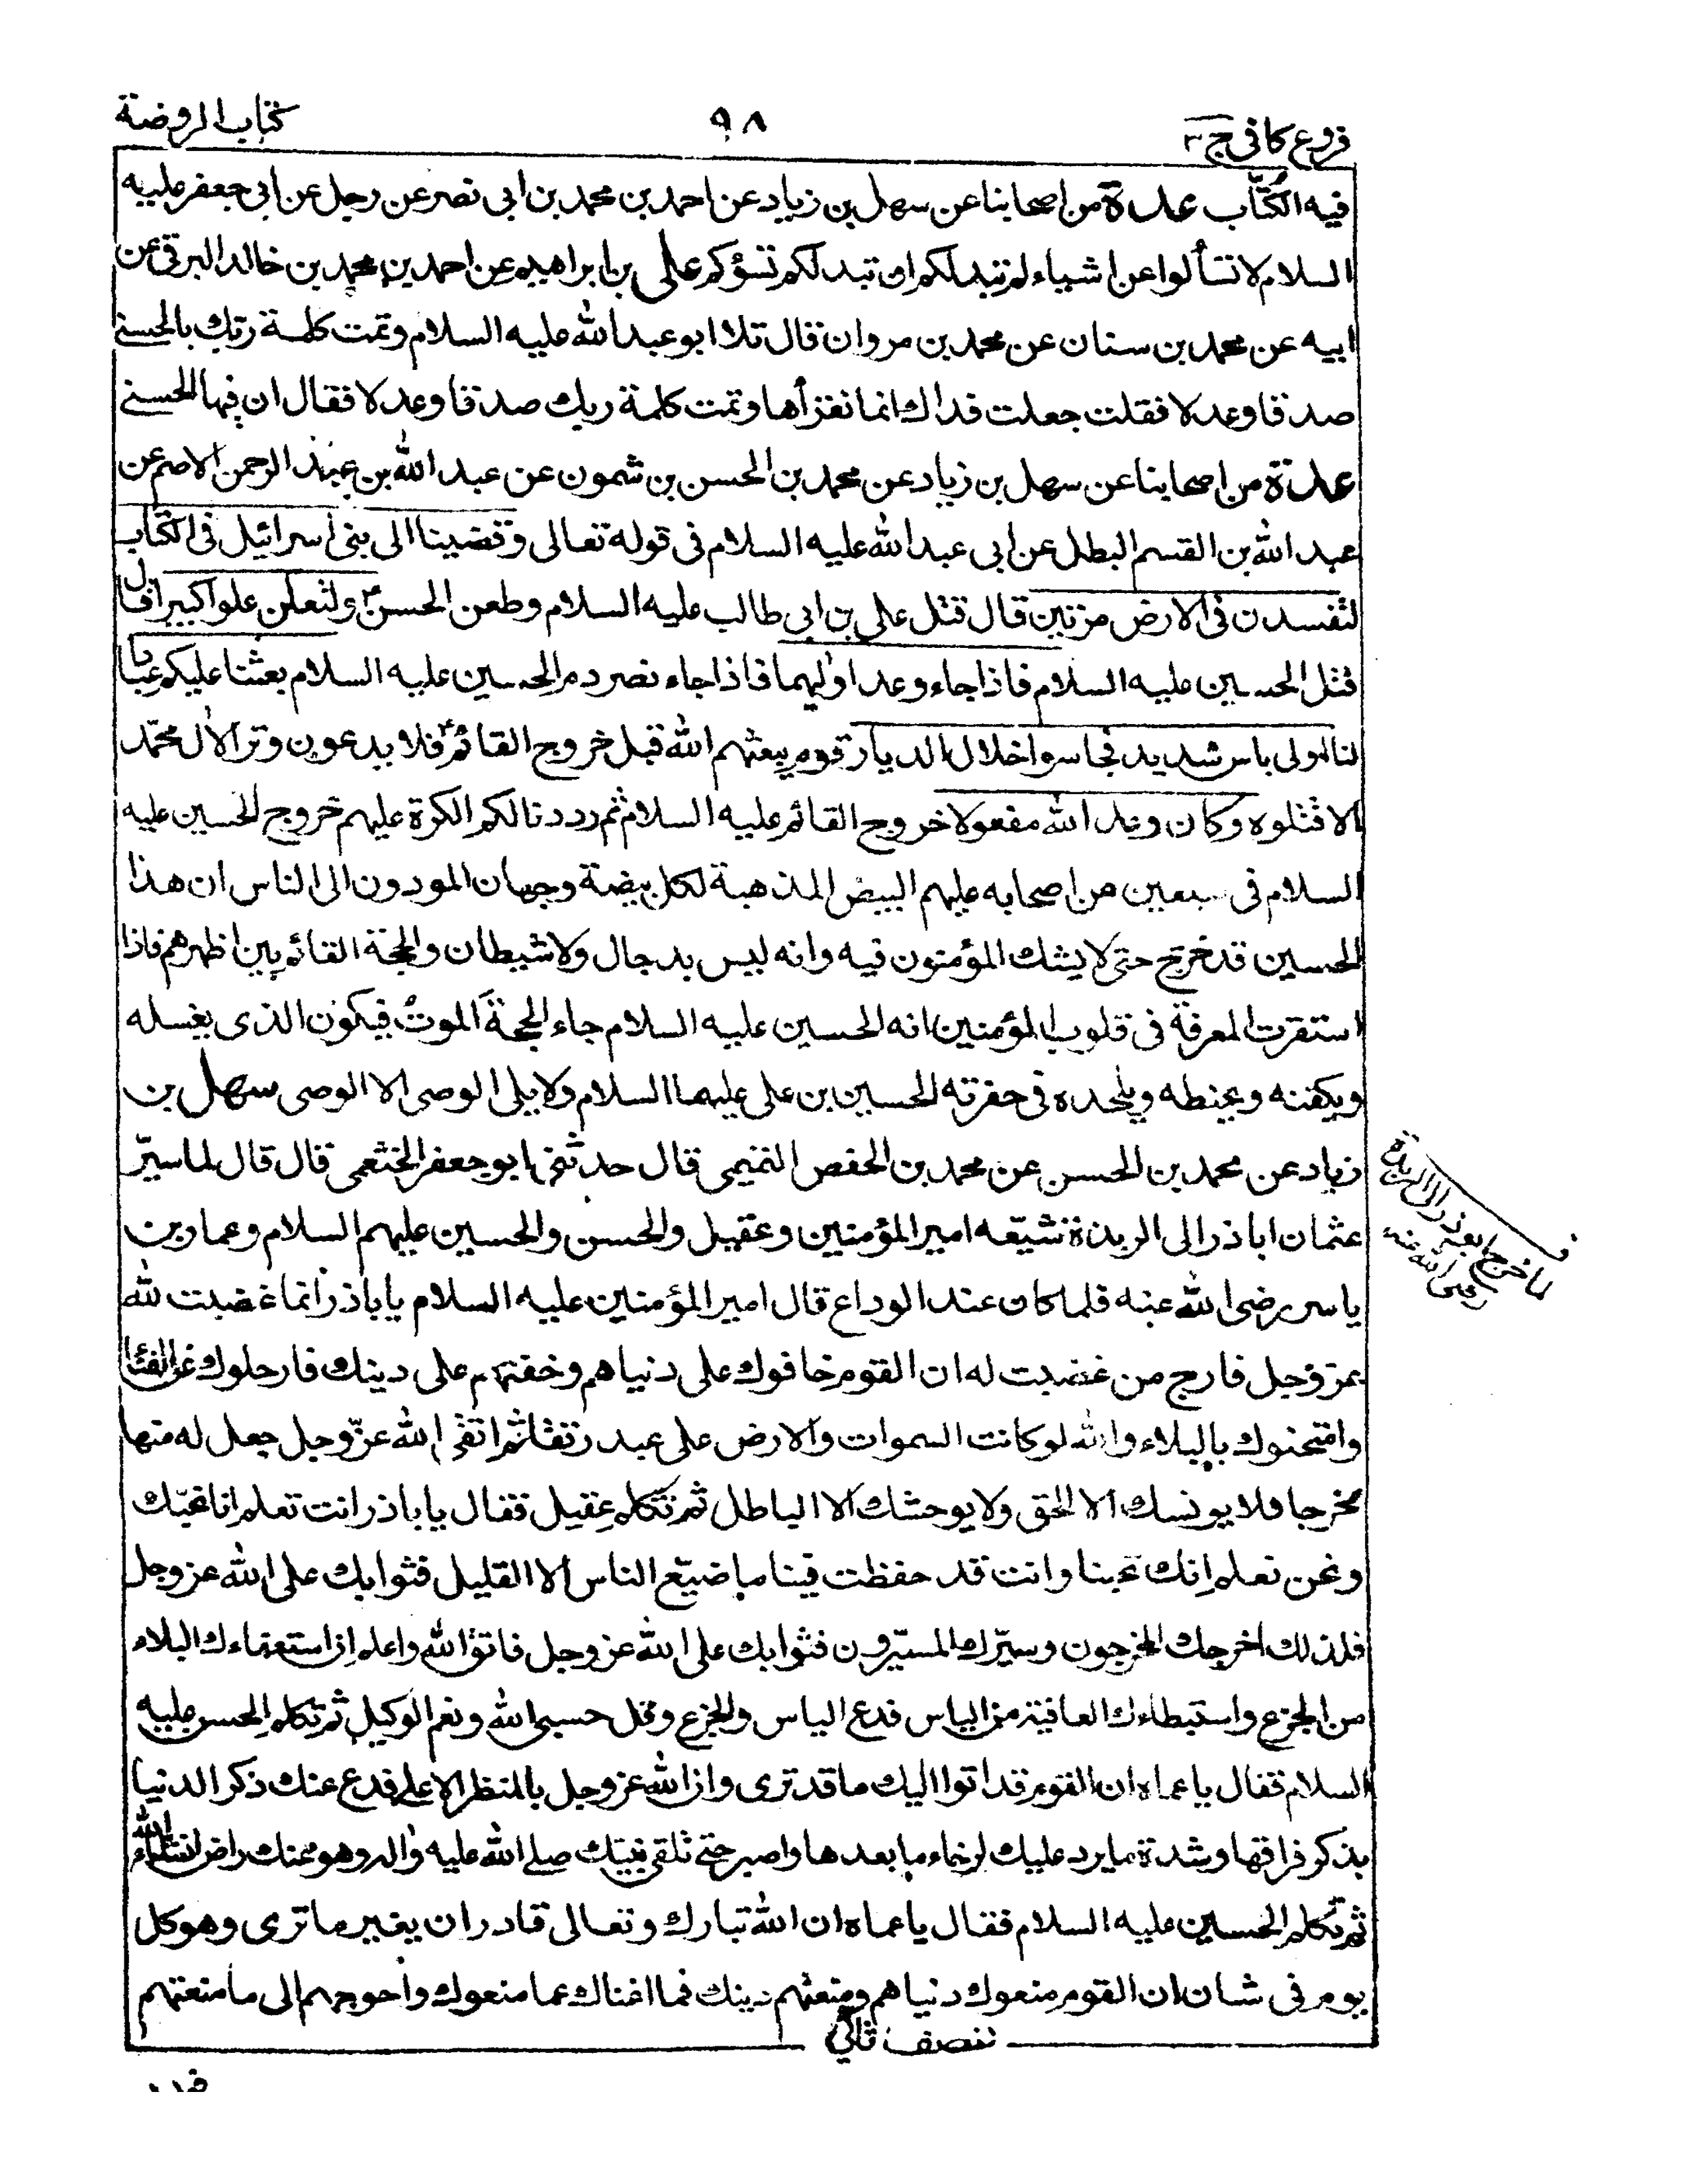 فروع كافى ج ٣
٩٨
كتاب الروضة
فيه الكتاب عدة من اصحابنا عن سهل بن زياد عن احمد بن محمد بن ابى نصر عن رجل عن ابى جعفر عليه
السلام لا تسألوا عن اشياء لم تبد لكم ان تبد لكم تسؤكم على بن ابراهيم عن احمد بن محمد بن خالد البرقى عن
ابيه عن محمد بن سنان عن محمد بن مروان قال تلا ابو عبد الله عليه السلام وتمت كلمة ربك بالحسنى
صدقا وعدلا فقلت جعلت فداك انما نقرأها وتمت كلمة ربك صدقا وعدلا فقال ان فيها الحسنى
عدة من اصحابنا عن سهل بن زياد عن محمد بن الحسن بن شمون عن عبد الله بن عبد الرحمن الاصم عن
عبد الله بن القسم البطل عن ابى عبد الله عليه السلام فى قوله تعالى وقضينا الى بنى اسرائيل فى الكتاب
لتفسدن فى الارض مرتين قال قتل على بن ابى طالب عليه السلام وطعن الحسن ولتعلن علوا كبيرا قال
قتل الحسين عليه السلام فاذا جاء وعد اوليهما فاذا جاء نصر دم الحسين عليه السلام بعثنا عليكم عبادا
لنا اولى باس شديد فجاسوا خلال الديار قوم يبعثهم الله قبل خروج القائم فلا يدعون وترا لآل محمد
الا قتلوه وكان وعد الله مفعولا خروج القائم عليه السلام ثم رددنا لكم الكرة عليهم خروج الحسين عليه
السلام فى سبعين من اصحابه عليهم البيض المذهبة لكل بيضة وجهان المودون الى الناس ان هذا
الحسين قد خرج حتى لا يشك المؤمنون فيه وانه ليس بدجال ولا شيطان والحجة القائم بين اظهرهم فاذا
استقرت المعرفة فى قلوب المؤمنين انه الحسين عليه السلام جاء الحجة الموت فيكون الذى يغسله
ويكفنه ويحنطه ويلحده فى حفرته الحسين بن على عليهما السلام ولا يلى الوصى الا الوصى سهل بن
زياد عن محمد بن الحسن عن محمد بن الحفص التميمى قال حدثنى ابو جعفر الخثعمى قال قال لما سيّر
عثمان اباذر الى الربذة شيّعه امير المؤمنين وعقيل والحسن والحسين عليهم السلام وعمار بن
ياسر رضى الله عنه فلما كان عند الوداع قال امير المؤمنين عليه السلام يا باذر انما غضبت لله
عز وجل فارج من غضبت له ان القوم خافوك على دنياهم وخفتهم على دينك فارحلوك عن الفناء
وامتحنوك بالبلاء والله لو كانت السموات والارض على عبد رتقا ثم اتقى الله عزّ وجل جعل له منها
مخرجا فلا يونسك الا الحق ولا يوحشك الا الباطل ثم تكلم عقيل فقال يا باذر انت تعلم انا نحبّك
ونحن نعلم انك تحبنا وانت قد حفظت فينا ما ضيّع الناس الا القليل فثوابك على الله عز وجل
فلذلك اخرجك المخرجون وسيّرك المسيّرون فثوابك على الله عز وجل فاتق الله واعلم ان استعفاءك البلاء
من الجزع واستبطاءك العافية من الياس فدع الياس والجزع وقل حسبى الله ونعم الوكيل ثم تكلم الحسن عليه
السلام فقال يا عماه ان القوم قد اتوا اليك ما قد ترى وان الله عز وجل بالمنظر الاعلى فدع عنك ذكر الدنيا
بذكر فراقها وشدة ما يرد عليك لرخاء ما بعدها واصبر حتى تلقى نبيّك صلى الله عليه واله وهو عنك راض انشاء الله
ثم تكلم الحسين عليه السلام فقال يا عماه ان الله تبارك وتعالى قادر ان يغير ما ترى وهو كل
يوم فى شان ان القوم منعوك دنياهم ومنعتهم دينك فما اغناك عما منعوك واحوجهم الى ما منعتهم
لما خرج ابوذر الى الربذة
رضى الله عنه
نصف ثانى